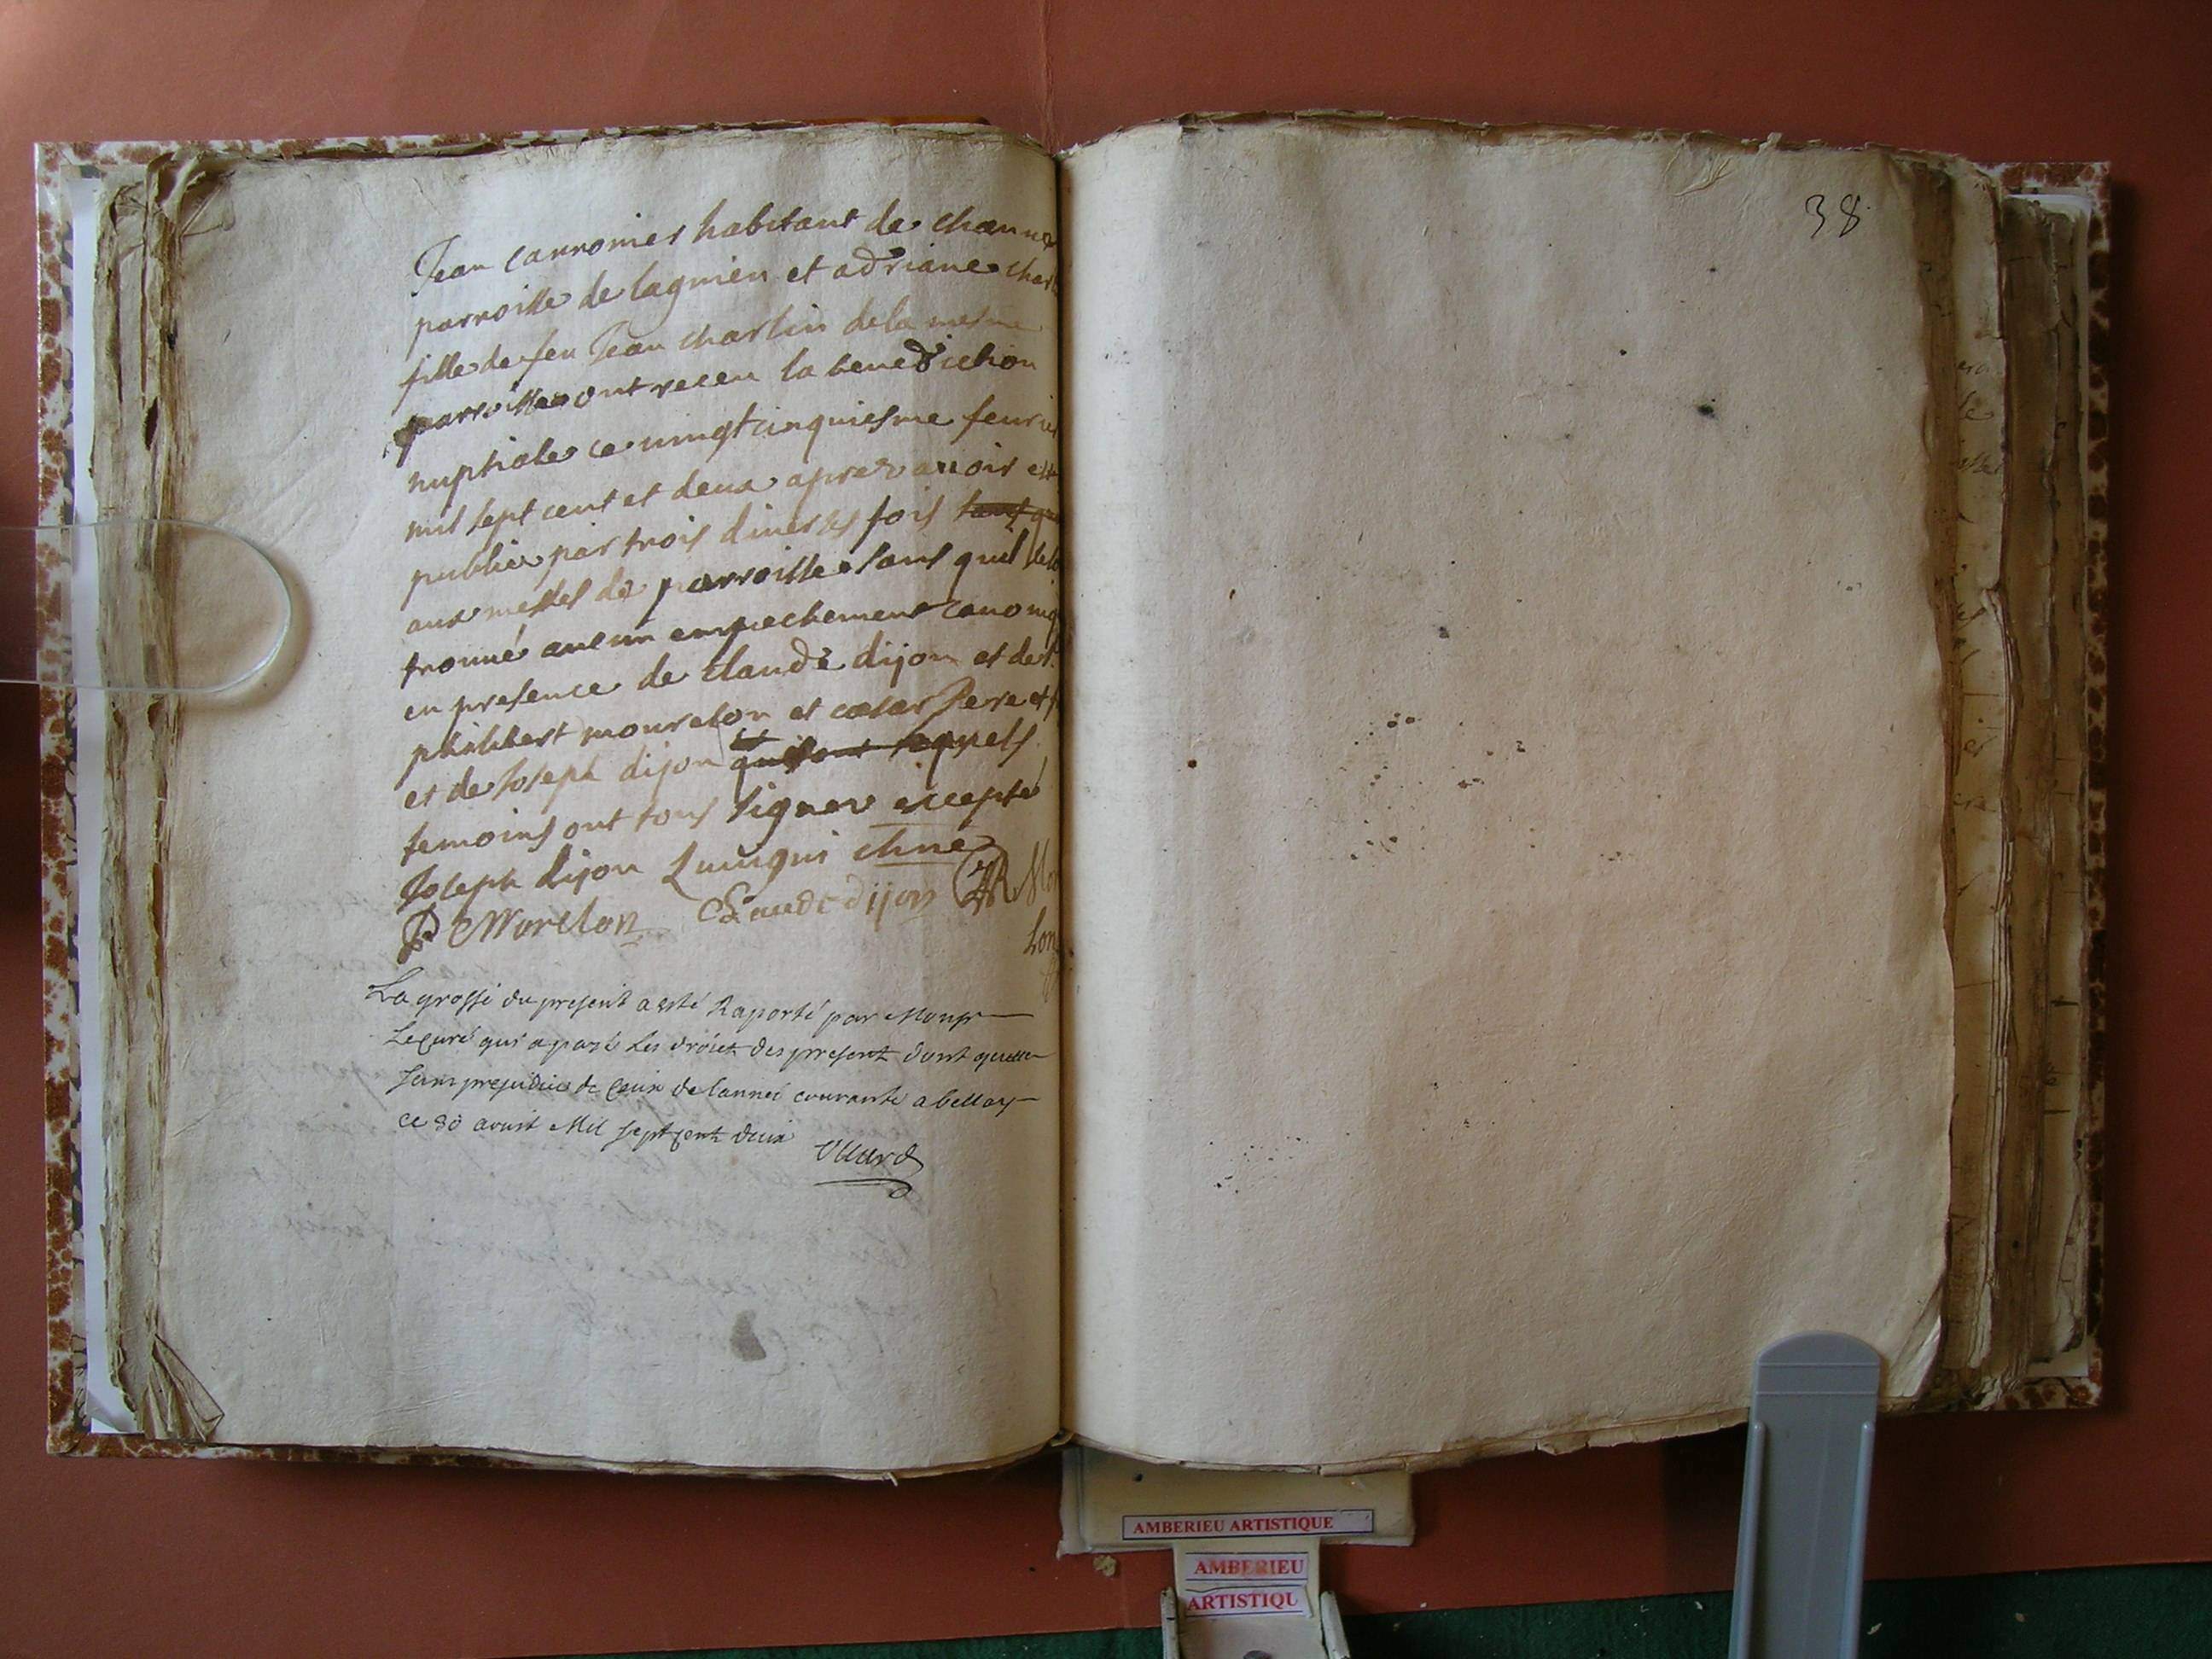 Jean carronier habitant de
parroisse de lagnieu et adriane
fille de feu Jean charlin de la mesme
parroisse ont receu la benediction
nuptiale ce vingtcinquiesme feurier
mil sept cent et deux aprez auoir esté
publié par trois diuerses fois
aux messes de parroisse sans quil
trouué aucun empechement
en presence de claude dijon et de
philibert mourelon et cæsar Pere et
et de Joseph dijon lesquels
temoins ont tous signer excepté
Joseph dijon
P Morelon Claude dijon
La grosse du present a esté Raporté par Monsr
Le curé qui a payé Les droict des present dont
sans prejudice de Ceux de lannee courante a bellay
ce 30 aoust Mil sept cent deux
38
AMBERIEU ARTISTIQUE
AMBERIEU
ARTISTIQU